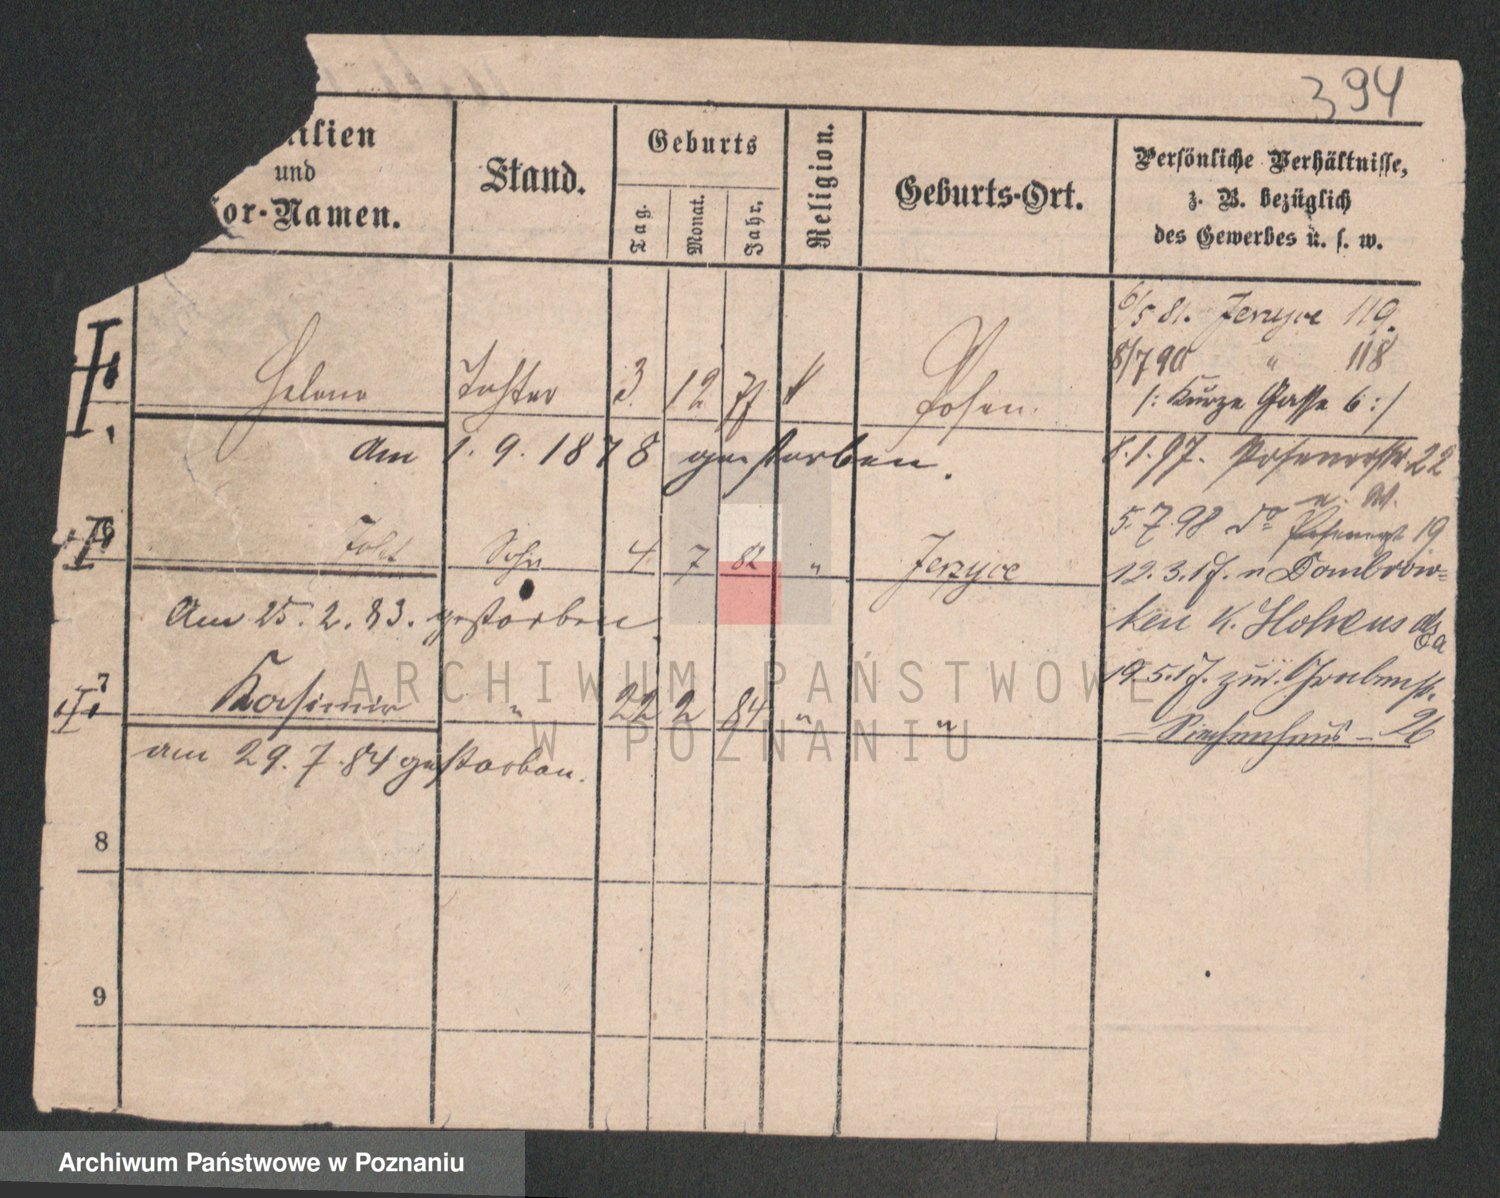 394
ilien
und
or-Namen.
Stand.
Geburts
Tag.
Monat.
Jahr.
Religion.
Geburts-Ort.
Persönliche Verhältnisse,
z. B. bezüglich
des Gewerbes u. s. w.
6/5 81. Jerzyce 119.
8/7 90 " 118
/: Kurze Gasse 6 :/
Helene Tochter 3 12 77 Posen.
am 1. 9. 1878 gestorben.
8. 1. 97. Posenerstr. 22
n. W.
5. 7. 98 do 19
6 Sohn 4 7 82 " Jerzyce
12. 3. 17. n Dombrow-
ken K.
Am 25. 2. 83. gestorben.
19. 5. 17. zur. Grabenst.
7 Kasimir " 22 2 84 " "
– Siechenhaus – 26
am 29. 7. 84 gestorben.
8
9
ARCHIWUM PAŃSTWOWE
W POZNANIU
Archiwum Państwowe w Poznaniu